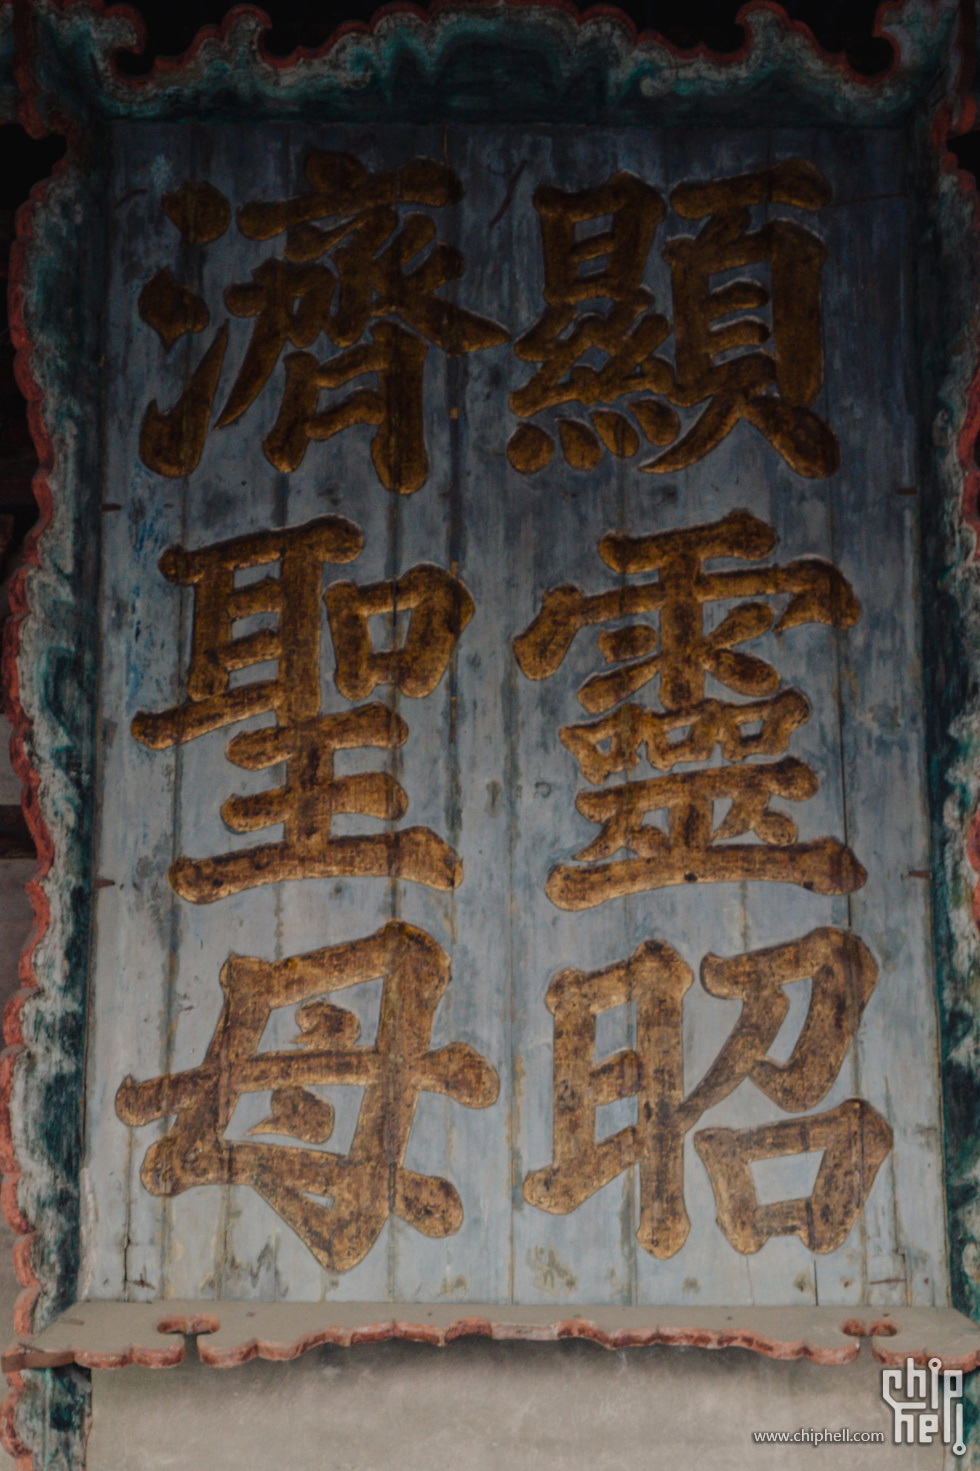 顯靈昭
濟聖母
www.chiphell.com
chip
hell